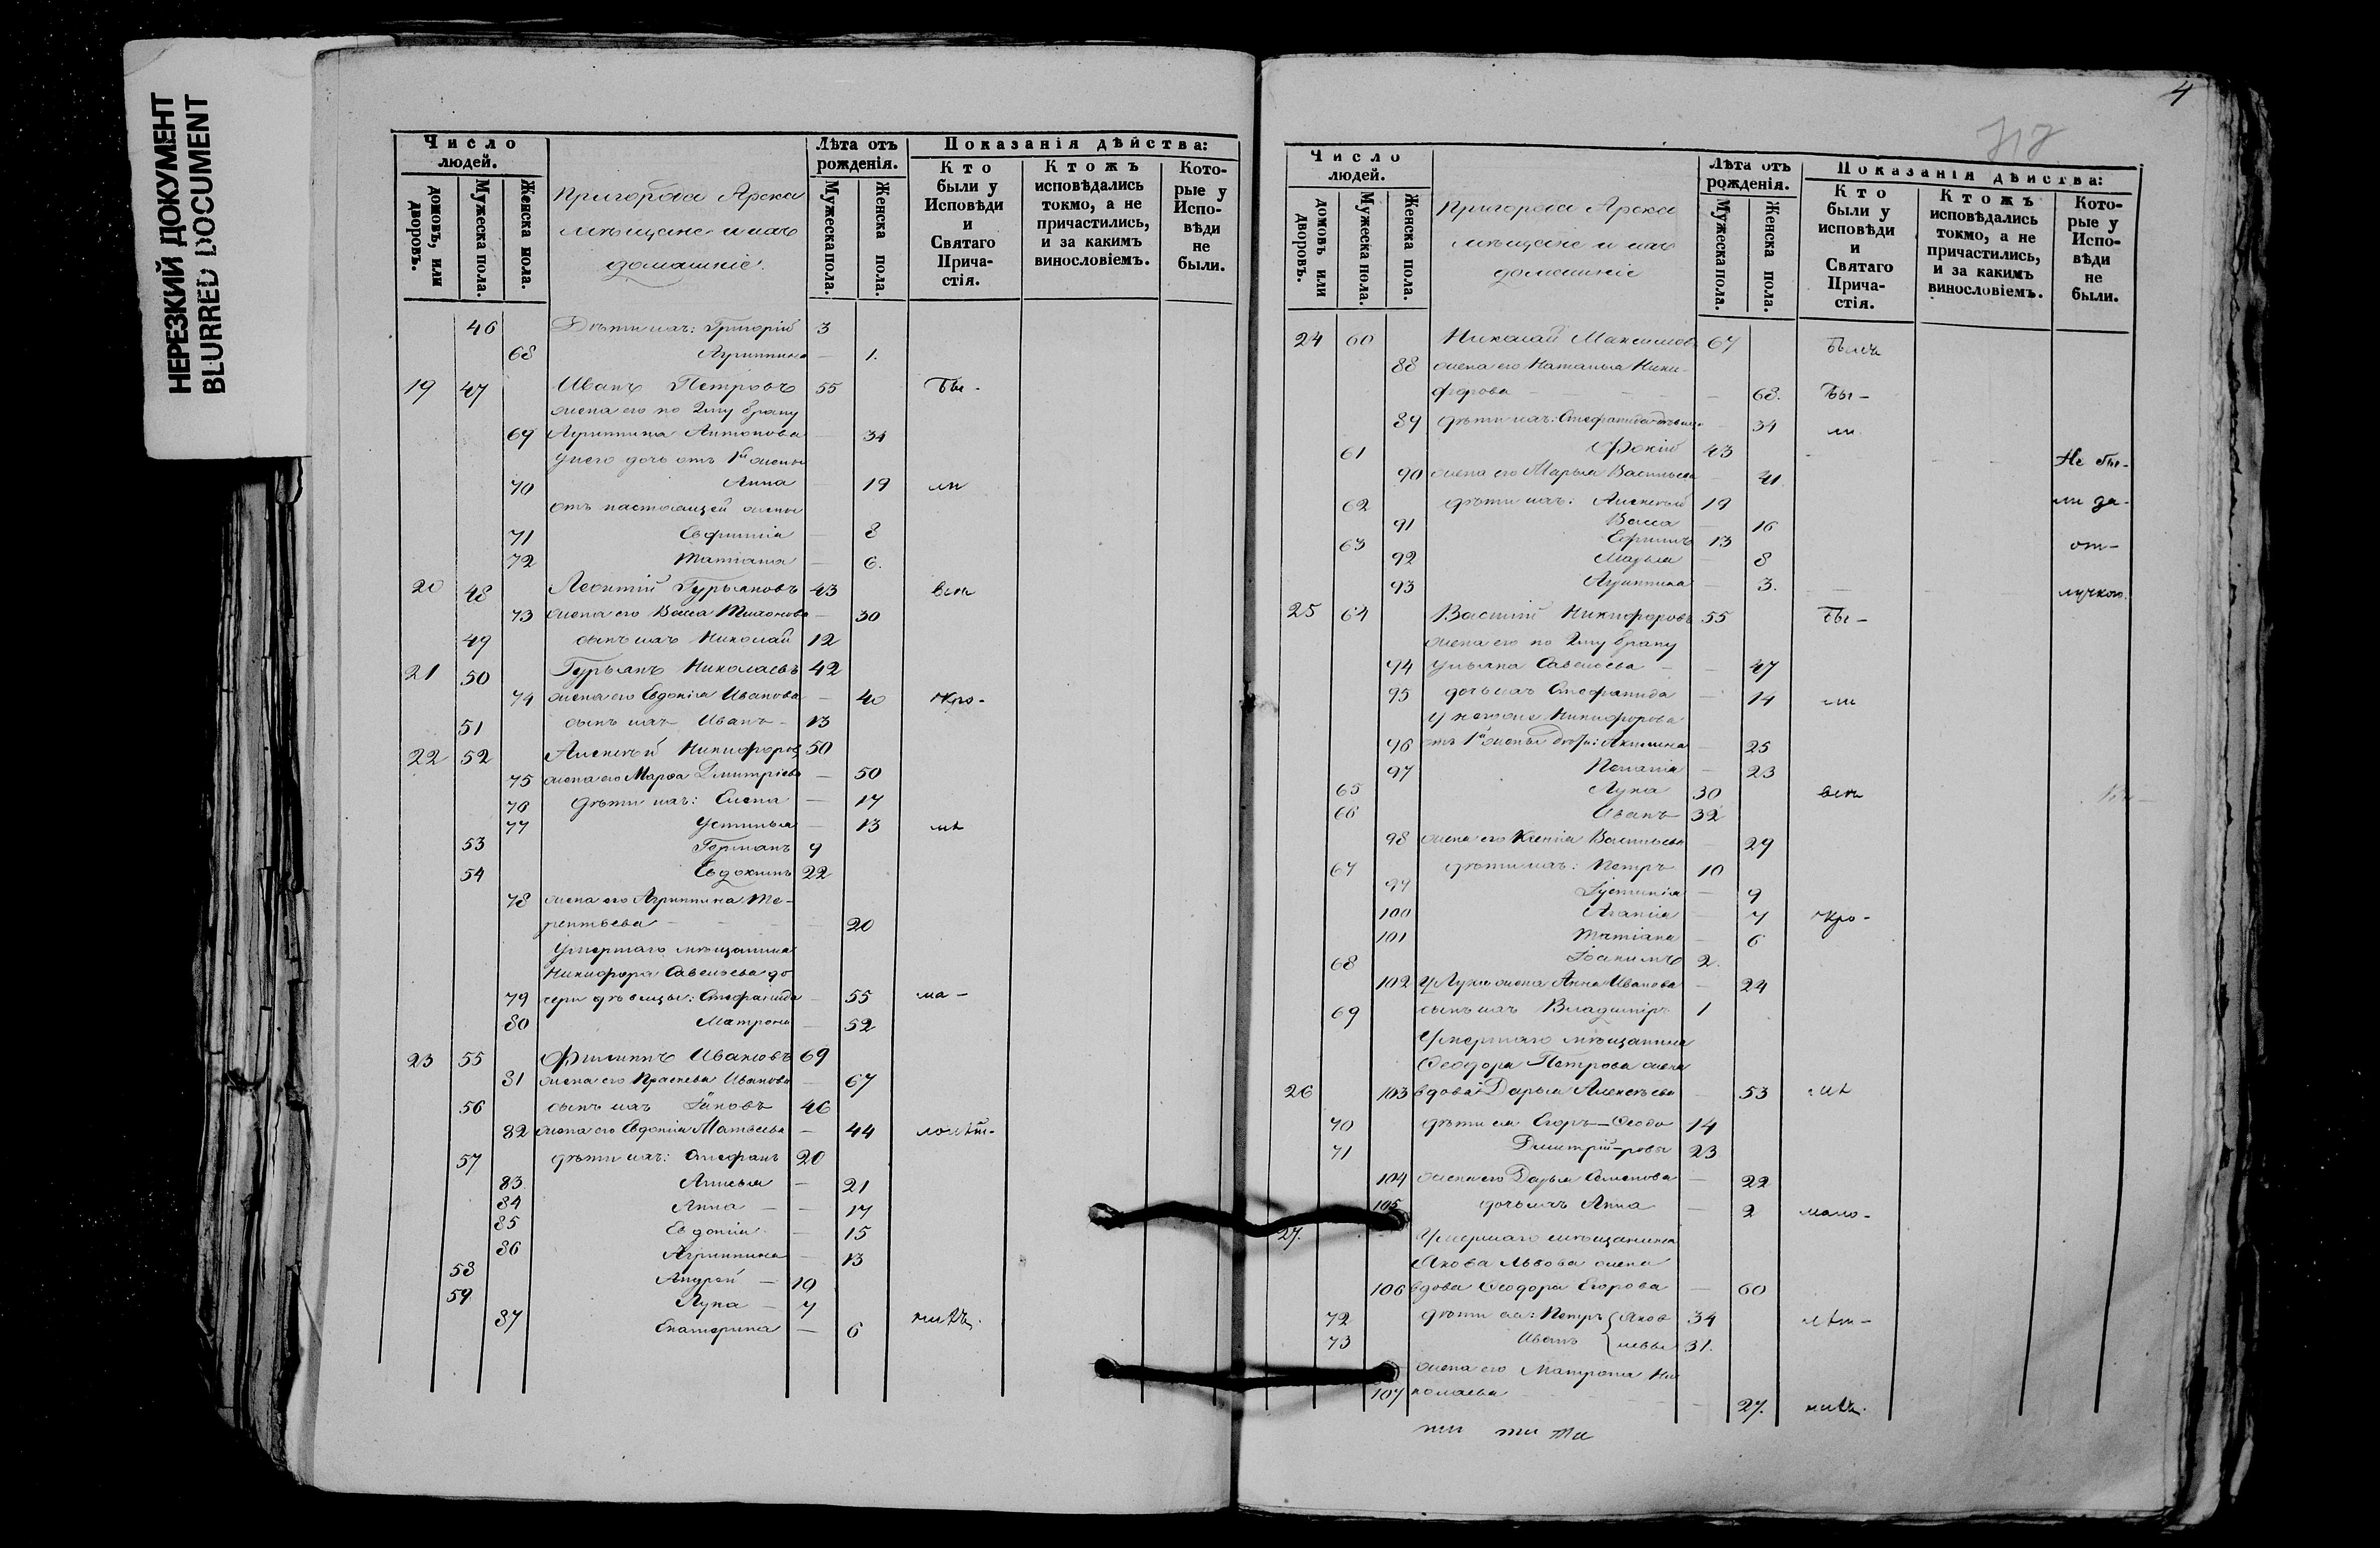 НЕРЕЗКИЙ ДОКУМЕНТ
BLURRED DOCUMENT
Число людей.
домовъ, или дворовъ.
Мужеска пола.
Женска пола.
Пригорода Арска
мѣщане и ихъ
домашніе.
Лѣта отъ рожденія.
Мужеска пола.
Женска пола.
Показанія дѣйства:
Кто были у Исповѣди и Святаго Прича-стія.
Ктожъ исповѣдались токмо, а не причастились, и за какимъ винословіемъ.
Кото-рые у Испо-вѣди не были.
46 Дѣти ихъ: Григорій 3
68 Агриппина — 1.
19 47 Иванъ Петровъ 55 Бы-
жена его по 2му браку
69 Агриппина Антонова — 34
У него дочь отъ 1й жены
70 Анна — 19 ли
отъ настоящей жены
71 Евфимія — 8
72 Татіана — 6.
20 48 Леонтій Гурьяновъ 43 всѣ
73 жена его Васса Тихонова — 30
49 сынъ ихъ Николай 12
21 50 Гурьянъ Николаевъ 42
74 жена его Евдокія Иванова — 40 кро-
51 сынъ ихъ Иванъ 13
22 52 Алексѣй Никифоровъ 50
75 жена его Марѳа Дмитріева — 50
76 дѣти ихъ: Елена — 17
77 Устинья — 13 мѣ
53 Германъ 9
54 Евдокимъ 22
78 жена его Агриппина Те-
рентьева — 20
Умершаго мѣщанина
Никифора Савельева до
79 чери дѣвицы: Стефанида — 55 ма-
80 Матрона — 52
23 55 Филиппъ Ивановъ 69
81 жена его Прасковья Иванова — 67
56 сынъ ихъ Іаковъ 46
82 жена его Евдокія Матвеева — 44 лолѣт-
57 дѣти ихъ: Стефанъ 20
83 — 21
84 Анна — 17
85 Евдокія — 15
86 Агриппина — 13
58 Андрей — 10
59 Лука — 7
87 Екатерина — 6 нихъ.
4
Число людей.
домовъ или дворовъ.
Мужеска пола.
Женска пола.
Пригорода Арска
мѣщане и ихъ
домашніе
Лѣта отъ рожденія.
Мужеска пола.
Женска пола.
Показанія дѣйства:
Кто были у исповѣди и Святаго Прича-стія.
Ктожъ исповѣдались токмо, а не причастились, и за какимъ винословіемъ.
Кото-рые у Испо-вѣди не были.
24 60 Николай Максимовъ 67
88 жена его Наталья Ники-
форова — 68. Бы-
89 дѣти ихъ: Стефанида дѣвица 34 ли
61 Фокій 43 Не бы-
90 жена его Марья Васильева — 41.
62 дѣти ихъ: Алексѣй 19 ли за
91 Васса — 16
63 Ефимъ 13 от-
92 Марья — 8
93 Агриппина — 3. лучкою.
25 64 Василій Никифоровъ 55 Бы-
жена его по 2му браку
94 Ульяна Савельева — 47
95 дочь ихъ Стефанида — 14 ли
У него же Никифорова
96 отъ 1й жены дѣти: Акилина — 25
97 Пелагія — 23
65 Лука 30 всѣ
66 Иванъ 32
98 жена его Ксенія Васильева — 29
67 дѣти ихъ: Петръ 10
99 — 9
100 Агапія — 7 кро-
101 Татіана — 6
68 Іоакимъ 2.
102 У Луки жена Анна Иванова — 24
69 сынъ ихъ Владиміръ 1
Умершаго мѣщанина
Ѳеодора Петрова жена
26 103 вдова Дарья Алексѣева — 53 мѣ
70 дѣти ея Егоръ — Ѳеодо 14
71 Дмитрій — ровы 23
104 жена его Дарья Семенова — 22
105 дочь ихъ Анна — 2 мало-
27. Умершаго мѣщанина
Якова Львова жена
106 вдова Ѳеодора Егорова — 60
72 дѣти ея: Петръ Яков 34 лѣт-
73 Иванъ левы 31.
жена его Матрона Ни
107 колаева — 27. нихъ.